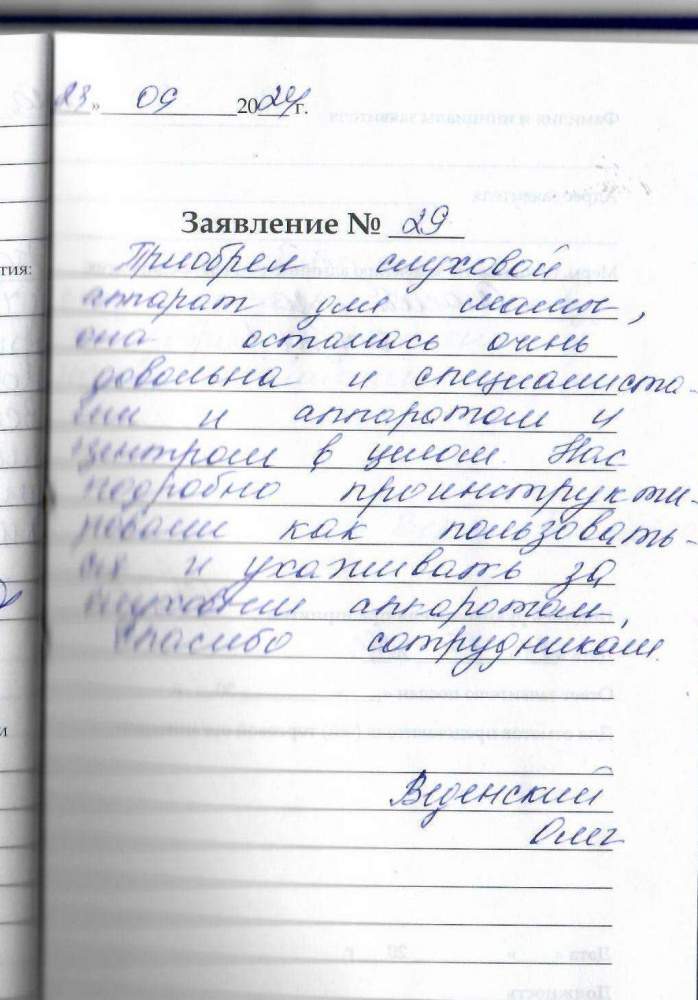 23 » 09 2024 г.
Заявление № 29
тия:
Приобрел слуховой
аппарат для мамы,
она осталась очень
довольна и специалиста-
ми и аппаратом и
центром в целом. Нас
подробно проинструкти-
ровали как пользовать-
ся и ухаживать за
слуховым аппаратом,
Спасибо сотрудникам.
и
Веденский
Олег